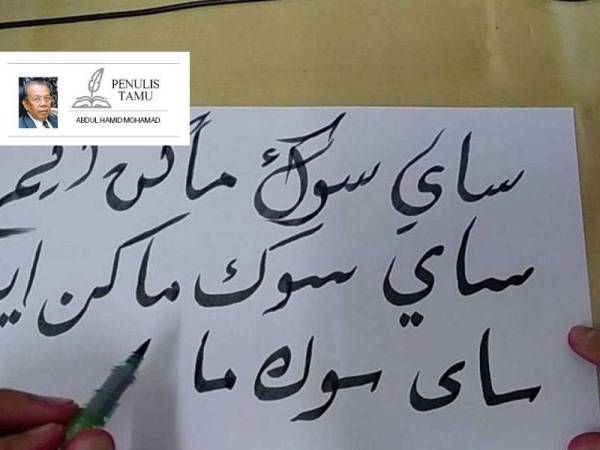 PENULIS
TAMU
ABDUL HAMID MOHAMAD
ساي سوک ماکن
ساي سوک ماکن
ساى سوک ما